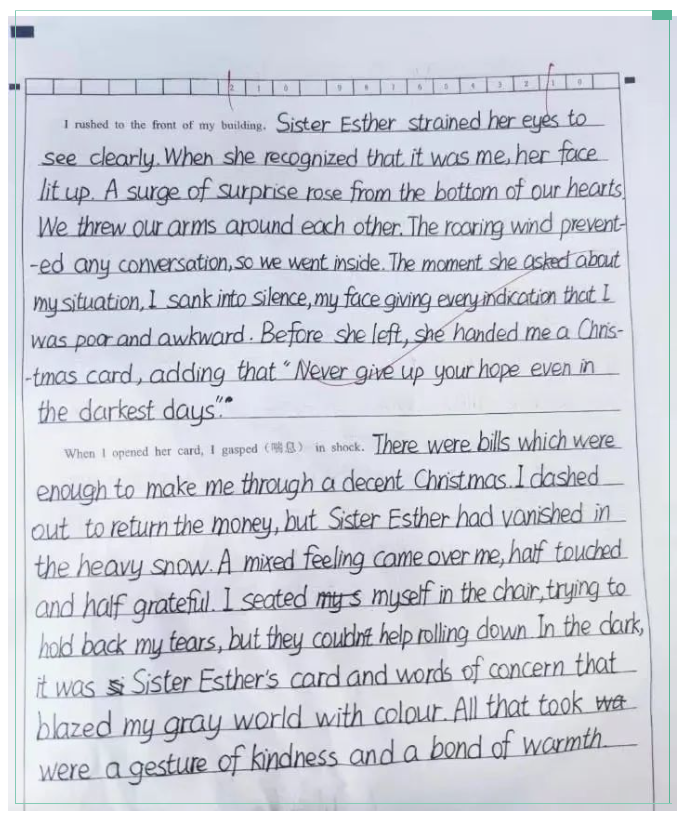 2 1 0 9 8 7 6 5 4 3 2 1 0
I rushed to the front of my building. Sister Esther strained her eyes to
see clearly. When she recognized that it was me, her face
lit up. A surge of surprise rose from the bottom of our hearts.
We threw our arms around each other. The roaring wind prevent-
-ed any conversation, so we went inside. The moment she asked about
my situation, I sank into silence, my face giving every indication that I
was poor and awkward. Before she left, she handed me a Chris-
-tmas card, adding that "Never give up your hope even in
the darkest days".
When I opened her card, I gasped (喘息) in shock. There were bills which were
enough to make me through a decent Christmas. I dashed
out to return the money, but Sister Esther had vanished in
the heavy snow. A mixed feeling came over me, half touched
and half grateful. I seated my s myself in the chair, trying to
hold back my tears, but they couldn't help rolling down. In the dark,
it was Sister Esther's card and words of concern that
blazed my gray world with colour. All that took wa
were a gesture of kindness and a bond of warmth.